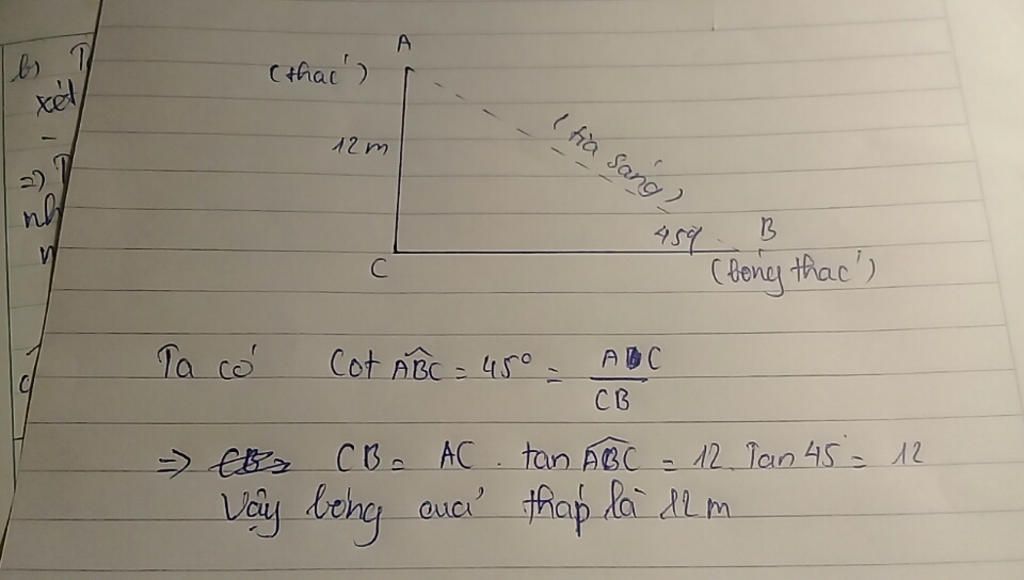 b) T
xét
-
=> T
nh
n
A
(thac')
12m
(tia sáng)
45°
B
C
(bóng thac')
Ta có Cot ABC = 45° = AC / CB
=> CB = AC . tan ABC = 12. Tan 45 = 12
Vậy bóng cuả tháp là 12m